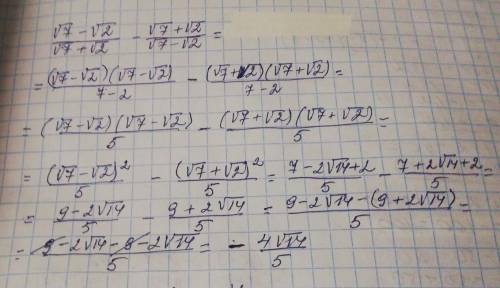 (√7 - √2)/(√7 + √2) - (√7 + √2)/(√7 - √2) =
= ((√7 - √2)(√7 - √2))/(7 - 2) - ((√7 + √2)(√7 + √2))/(7 - 2) =
= ((√7 - √2)(√7 - √2))/5 - ((√7 + √2)(√7 + √2))/5 =
= (√7 - √2)²/5 - (√7 + √2)²/5 = (7 - 2√14 + 2)/5 - (7 + 2√14 + 2)/5 =
= (9 - 2√14)/5 - (9 + 2√14)/5 = (9 - 2√14 - (9 + 2√14))/5 =
= (9 - 2√14 - 9 - 2√14)/5 = - 4√14/5